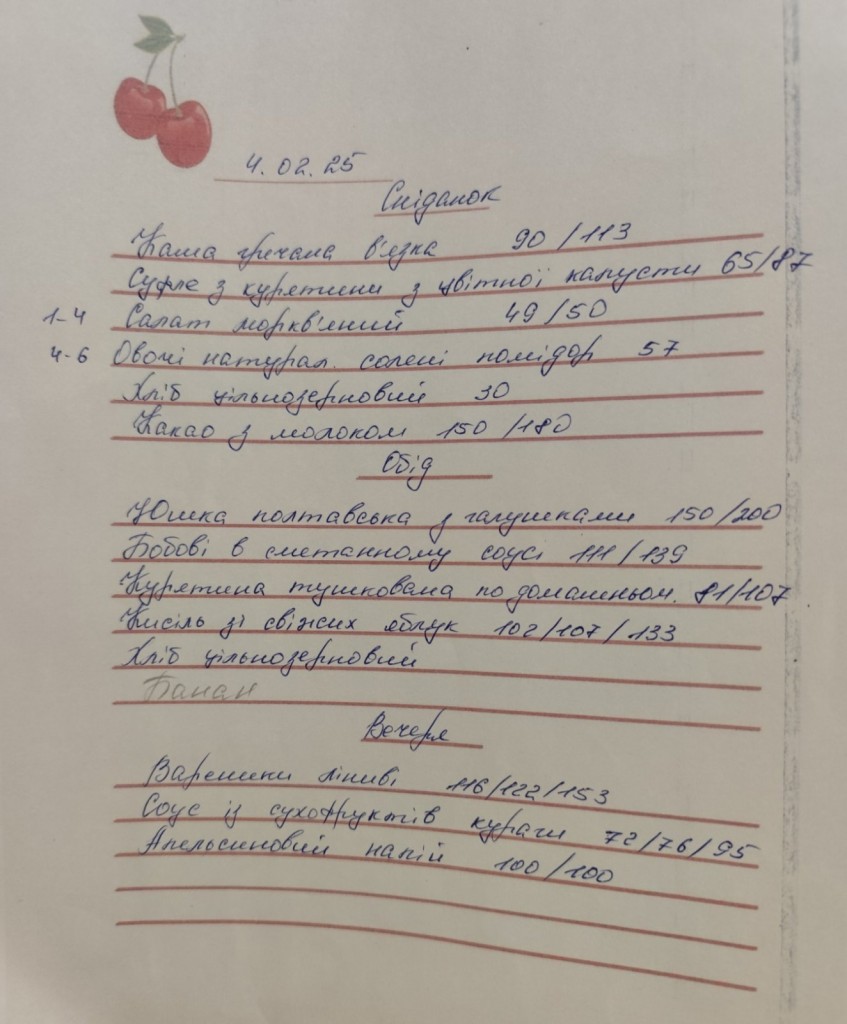 4.02.25
Сніданок
Каша гречана в'язка 90/113
Суфле з курятини з цвітної капусти 65/87
1-4 Салат морквяний 49/50
4-6 Овочі натурал. солені помідор 57
Хліб цільнозерновий 30
Какао з молоком 150/180
Обід
Юшка полтавська з галушками 150/200
Бобові в сметанному соусі 111/139
Курятина тушкована по домашньом. 81/107
Кисіль зі свіжих яблук 102/107/133
Хліб цільнозерновий
Банан
Вечеря
Вареники ліниві 116/122/153
Соус із сухофруктів кураги 72/76/95
Апельсиновий напій 100/100